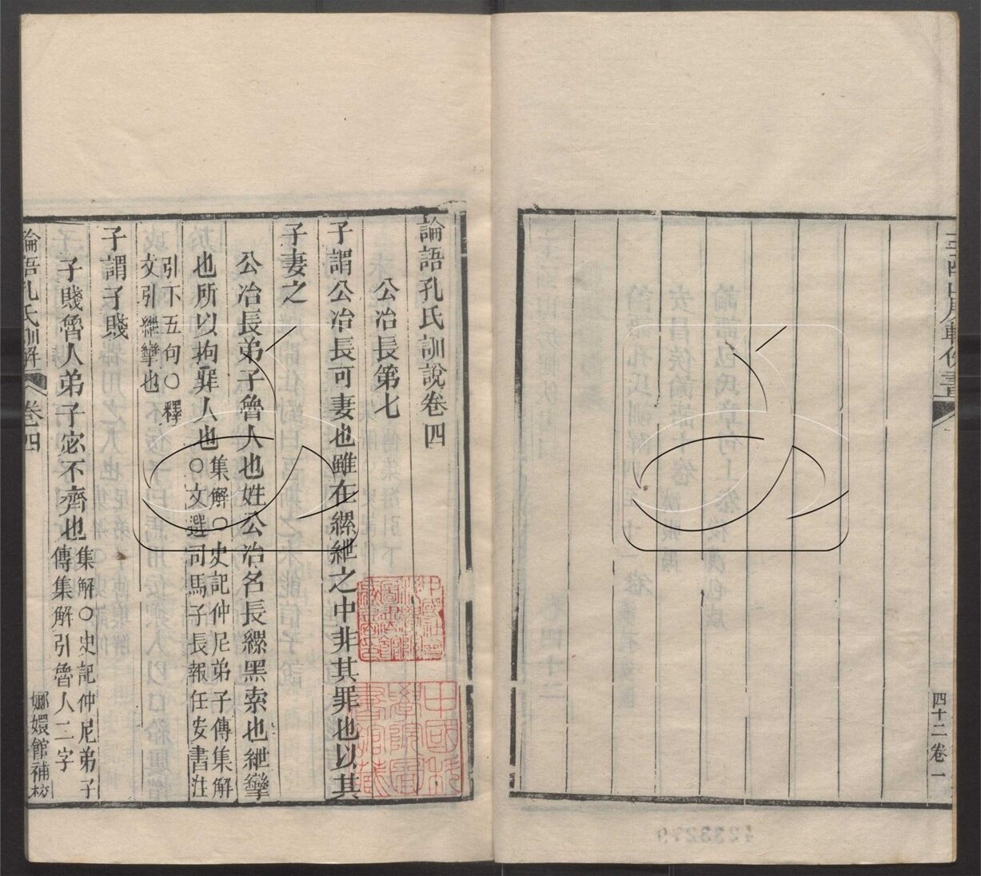 論語孔氏訓說卷四
公冶長第七
子謂公冶長可妻也雖在縲紲之中非其罪也以其
子妻之
公冶長弟子魯人也姓公冶名長縲黑索也紲攣
也所以拘罪人也集解○史記仲尼弟子傳集解
○文選司馬子長報任安書注
引下五句○釋
文引紲攣也
子謂子賤
子賤魯人弟子宓不齊也集解○史記仲尼弟子
傳集解引魯人二字
論語孔氏訓解
卷四
嫏嬛館補校
四十二卷一
4233279